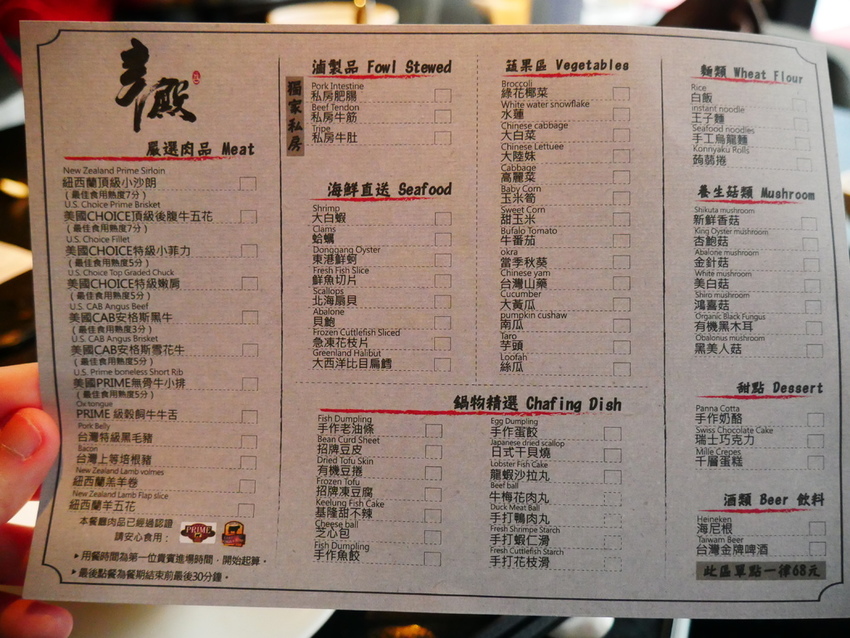 嚴選肉品 Meat
New Zealand Prime Sirloin
紐西蘭頂級小沙朗
(最佳食用熟度7分)
U.S. Choice Prime Brisket
美國CHOICE頂級後腹牛五花
(最佳食用熟度7分)
U.S. Choice Fillet
美國CHOICE特級小菲力
(最佳食用熟度5分)
U.S. Choice Top Graded Chuck
美國CHOICE特級嫩肩
(最佳食用熟度5分)
U.S. CAB Angus Beef
美國CAB安格斯黑牛
(最佳食用熟度3分)
U.S. CAB Angus Brisket
美國CAB安格斯雪花牛
(最佳食用熟度5分)
U.S. Prime boneless Short Rib
美國PRIME無骨牛小排
(最佳食用熟度5分)
Ox tongue
PRIME 級穀飼牛牛舌
Pork Belly
台灣特級黑毛豬
Bacon
台灣上等培根豬
New Zealand Lamb volmes
紐西蘭羔羊卷
New Zealand Lamb Flap slice
紐西蘭羊五花
本餐廳肉品已經過認證
請安心食用：
PRIME
▸用餐時間為第一位貴賓進場時間，開始起算。
▸最後點餐為餐期結束前最後30分鐘。
獨家私房
滷製品 Fowl Stewed
Pork Intestine
私房肥腸
Beef Tendon
私房牛筋
Tripe
私房牛肚
海鮮直送 Seafood
Shrimp
大白蝦
Clams
蛤蠣
Donggang Oyster
東港鮮蚵
Fresh Fish Slice
鮮魚切片
Scallops
北海扇貝
Abalone
貝鮑
Frozen Cuttlefish Sliced
急凍花枝片
Greenland Halibut
大西洋比目扁鱈
蔬果區 Vegetables
Broccoli
綠花椰菜
White water snowflake
水蓮
Chinese cabbage
大白菜
Chinese Lettuee
大陸妹
Cabbage
高麗菜
Baby Corn
玉米筍
Sweet Corn
甜玉米
Bufalo Tomato
牛番茄
okra
當季秋葵
Chinese yam
台灣山藥
Cucumber
大黃瓜
pumpkin cushaw
南瓜
Taro
芋頭
Loofah
絲瓜
鍋物精選 Chafing Dish
Fish Dumpling
手作老油條
Bean Curd Sheet
招牌豆皮
Dried Tofu Skin
有機豆捲
Frozen Tofu
招牌凍豆腐
Keelung Fish Cake
基隆甜不辣
Cheese ball
芝心包
Fish Dumpling
手作魚餃
Egg Dumpling
手作蛋餃
Japanese dried scallop
日式干貝燒
Lobster Fish Cake
龍蝦沙拉丸
Beef ball
牛梅花肉丸
Duck Meat Ball
手打鴨肉丸
Fresh Shrimpe Starch
手打蝦仁滑
Fresh Cuttlefich Starch
手打花枝滑
麵類 Wheat Flour
Rice
白飯
instant noodle
王子麵
Seafood noodles
手工烏龍麵
Konnyaku Rolls
蒟蒻捲
養生菇類 Mushroom
Shikuta mushroom
新鮮香菇
King Oyster mushroom
杏鮑菇
Abalone mushroom
金針菇
White mushroom
美白菇
Shiro mushroom
鴻喜菇
Organic Black Fungus
有機黑木耳
Obalonus mushroom
黑美人菇
甜點 Dessert
Panna Cotta
手作奶酪
Swiss Chocolate Cake
瑞士巧克力
Mille Crepes
千層蛋糕
酒類 Beer 飲料
Heineken
海尼根
Taiwarn Beer
台灣金牌啤酒
此區單點一律68元